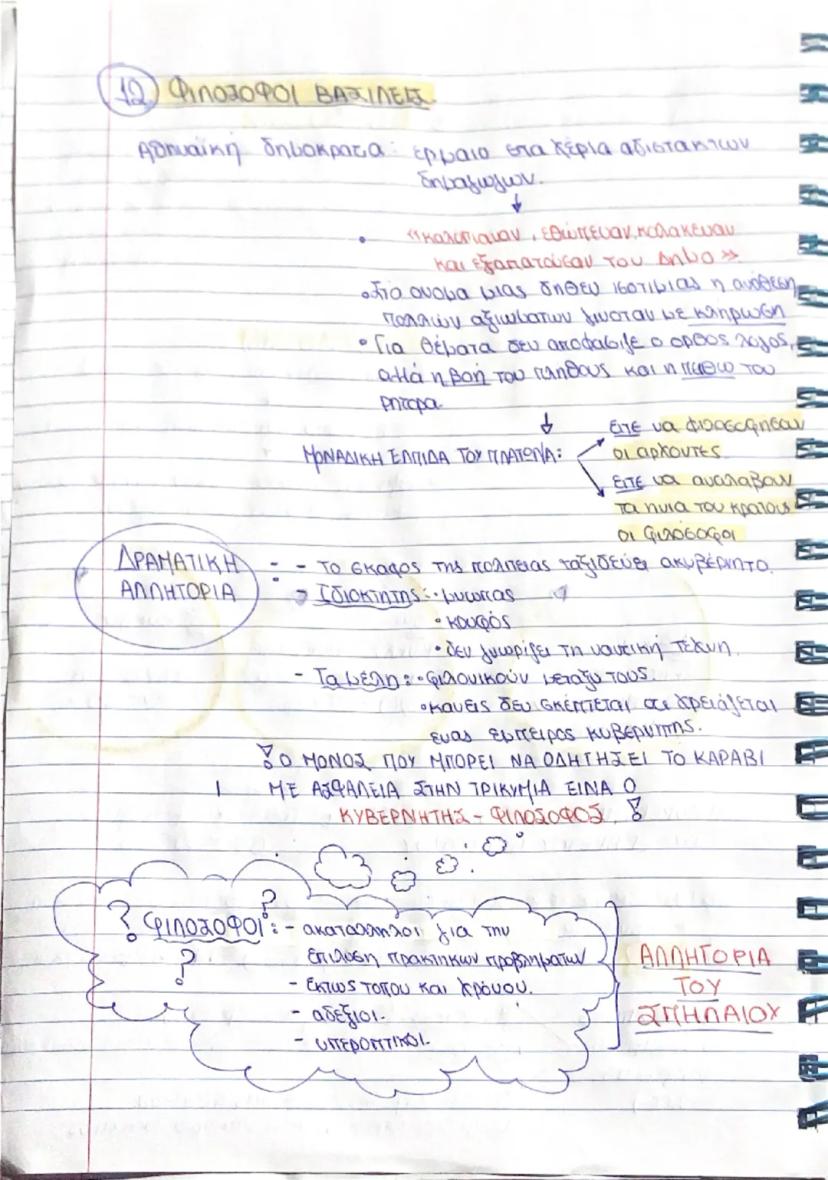 12. ΦΙΛΟΣΟΦΟΙ ΒΑΣΙΛΕΙΣ
Αθηναϊκή δημοκρατα: έρμαιο στα χέρια αδιστακτων
δημαγωγων.
↓
• «καλοπιαιαν, εθώπευαν, κολακευαν
και εξαπατούσαν τον Δήμο»
• Στο ονομα μιας δηθεν ισοτιμιας η αναθεση
πολλών αξιωματων γινοταν με κλήρωση
• Για θέματα δεν αποφασιζε ο ορθος λογος,
αλλά η βοή του πληθους και η πειθω του
ρητορα.
↓
ΜΟΝΑΔΙΚΗ ΕΛΠΙΔΑ ΤΟΥ ΠΛΑΤΩΝΑ:
ειτε να φιλοσοφησουν
οι αρχοντες
ειτε να αναλαβουν
τα ηνια του κρατους
οι φιλόσοφοι
ΔΡΑΜΑΤΙΚΗ
ΑΛΛΗΓΟΡΙΑ
: - Το σκαφος της πολιτειας ταξιδεύει ακυβέρνητο.
→ Ιδιοκτητης: • μυωπας
• κουφός
• δεν γνωριζει τη ναυτική τέχνη.
- Τα μέλη: • φιλονικούν μεταξυ τους.
• κανεις δεν σκέπτεται οτι χρειάζεται
ενας εμπειρος κυβερνητης.
! Ο ΜΟΝΟΣ ΠΟΥ ΜΠΟΡΕΙ ΝΑ ΟΔΗΓΗΣΕΙ ΤΟ ΚΑΡΑΒΙ
ΜΕ ΑΣΦΑΛΕΙΑ ΣΤΗΝ ΤΡΙΚΥΜΙΑ ΕΙΝΑ Ο
ΚΥΒΕΡΝΗΤΗΣ - ΦΙΛΟΣΟΦΟΣ !
? ΦΙΛΟΣΟΦΟΙ ?: - ακαταλληλοι για την
? επιλυση πρακτικων προβληματων
- εκτως τοπου και χρόνου.
- αδεξιοι.
- υπεροπτικοι.
ΑΛΛΗΓΟΡΙΑ
ΤΟΥ
ΣΠΗΛΑΙΟΥ